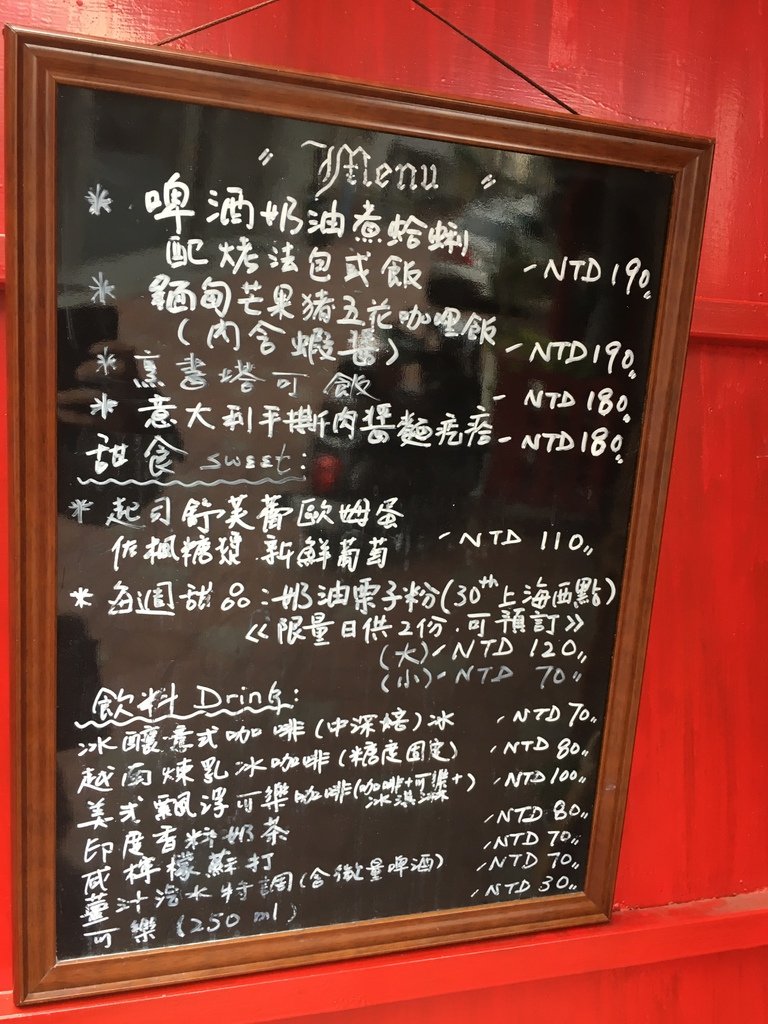 " Menu "
* 啤酒奶油煮蛤蜊
配烤法包或飯 - NTD 190,,
* 緬甸芒果豬五花咖哩飯
(內含蝦醬) - NTD 190,,
* 烹書塔可飯 - NTD 180,,
* 意大利手撕肉醬麵疙瘩 - NTD 180,,
甜食 sweet:
* 起司舒芙蕾歐姆蛋
佐楓糖漿.新鮮葡萄 - NTD 110,,
* 每週甜品:奶油栗子粉(30th上海西點)
《限量日供2份.可預訂》
(大) - NTD 120,,
(小) - NTD 70,,
飲料 Drink:
冰釀意式咖啡(中深焙)冰 - NTD 70,,
越南煉乳冰咖啡(糖度固定) - NTD 80,,
美式飄浮可樂咖啡(咖啡+可樂+冰淇淋) - NTD 100,,
印度香料奶茶 - NTD 80,,
咸檸檬蘇打 - NTD 70,,
薑汁汽水特調(含微量啤酒) - NTD 70,,
可樂(250 ml) - NTD 30,,